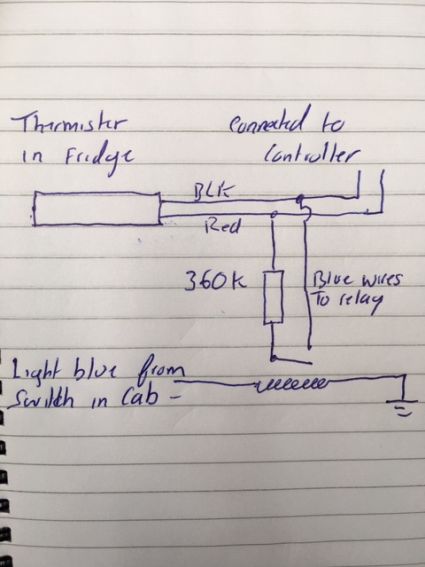 Thermister
in Fridge
Connected to
Controller
BLK
Red
360K
Blue wires
To relay
Light blue from
Switch in Cab -